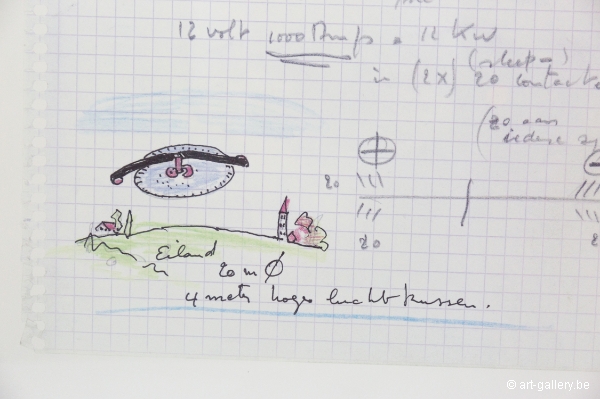 12 volt 1000 Amps = 12 KW
(sleep=)
in (2x) 20 contacte
(20 aan
iedere zij
20
20
Eiland
20 m Ø
4 meter hoger luchtkussen.
© art-gallery.be